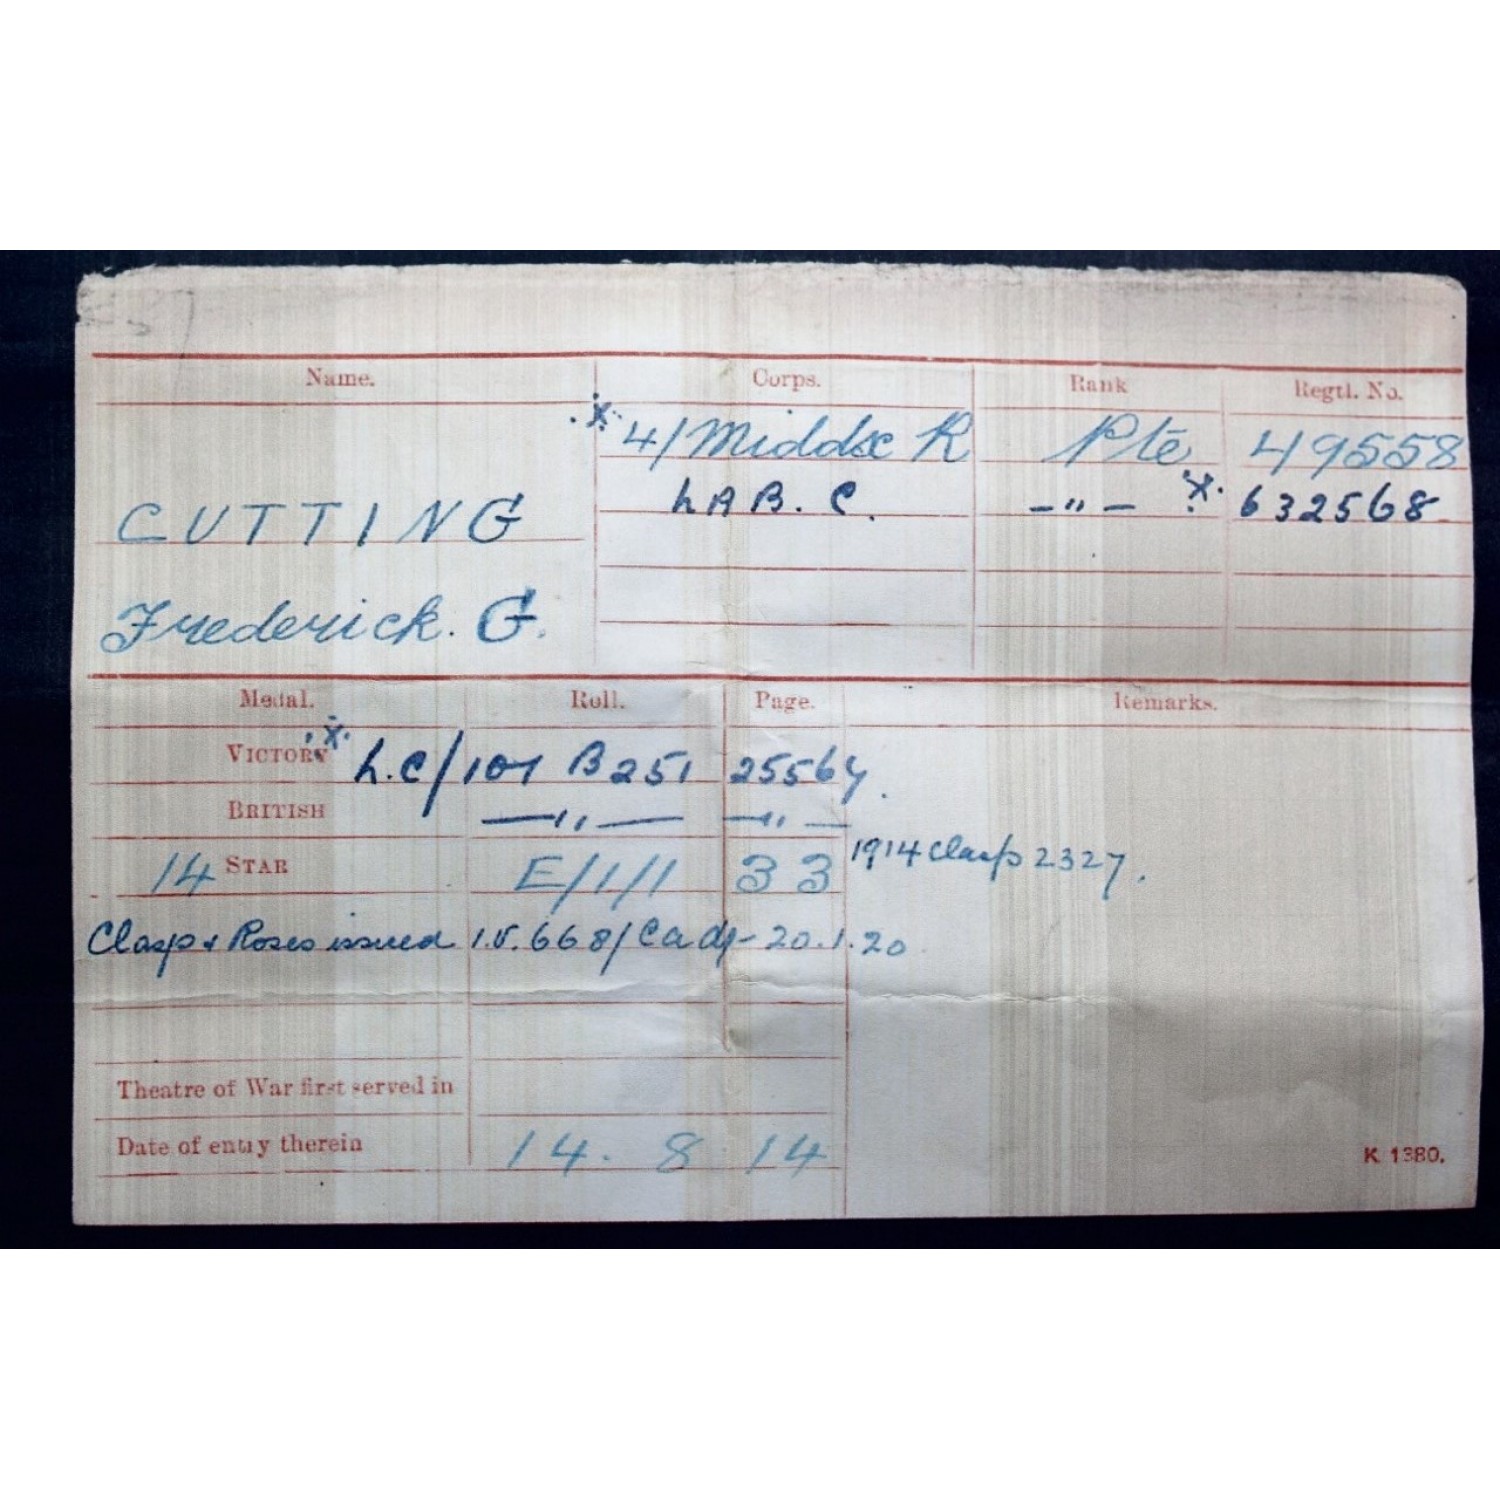 Name. Corps. Rank Regtl. No.
4/Middx R Pte 49558
LAB. C. -"- 632568
CUTTING
Frederick. G.
Medal. Roll. Page. Remarks.
VICTORY L.C/101 B251 25564.
BRITISH -"- -"-
14 STAR E/1/1 33 1914 Clasp 2327.
Clasp & Roses issued I.V. 668/ 20.1.20
Theatre of War first served in
Date of entry therein 14. 8 14
K 1380.